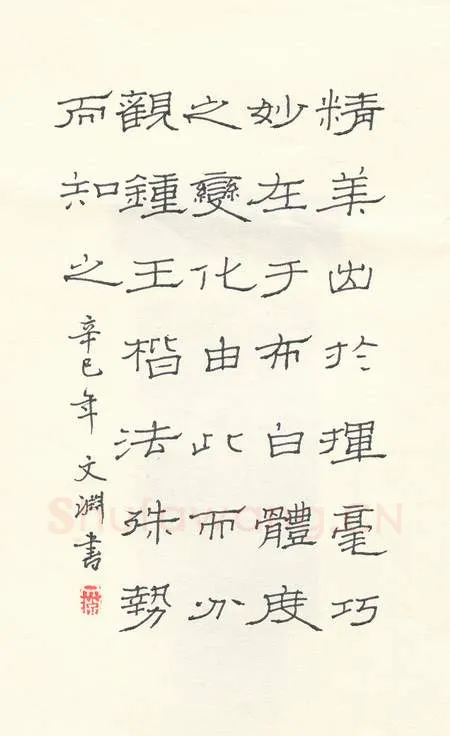 精美出於揮毫巧
妙在于布白體度
之變化由此而分
觀鍾王楷法殊勢
而知之
辛巳年文淵書
Shufawang.CN